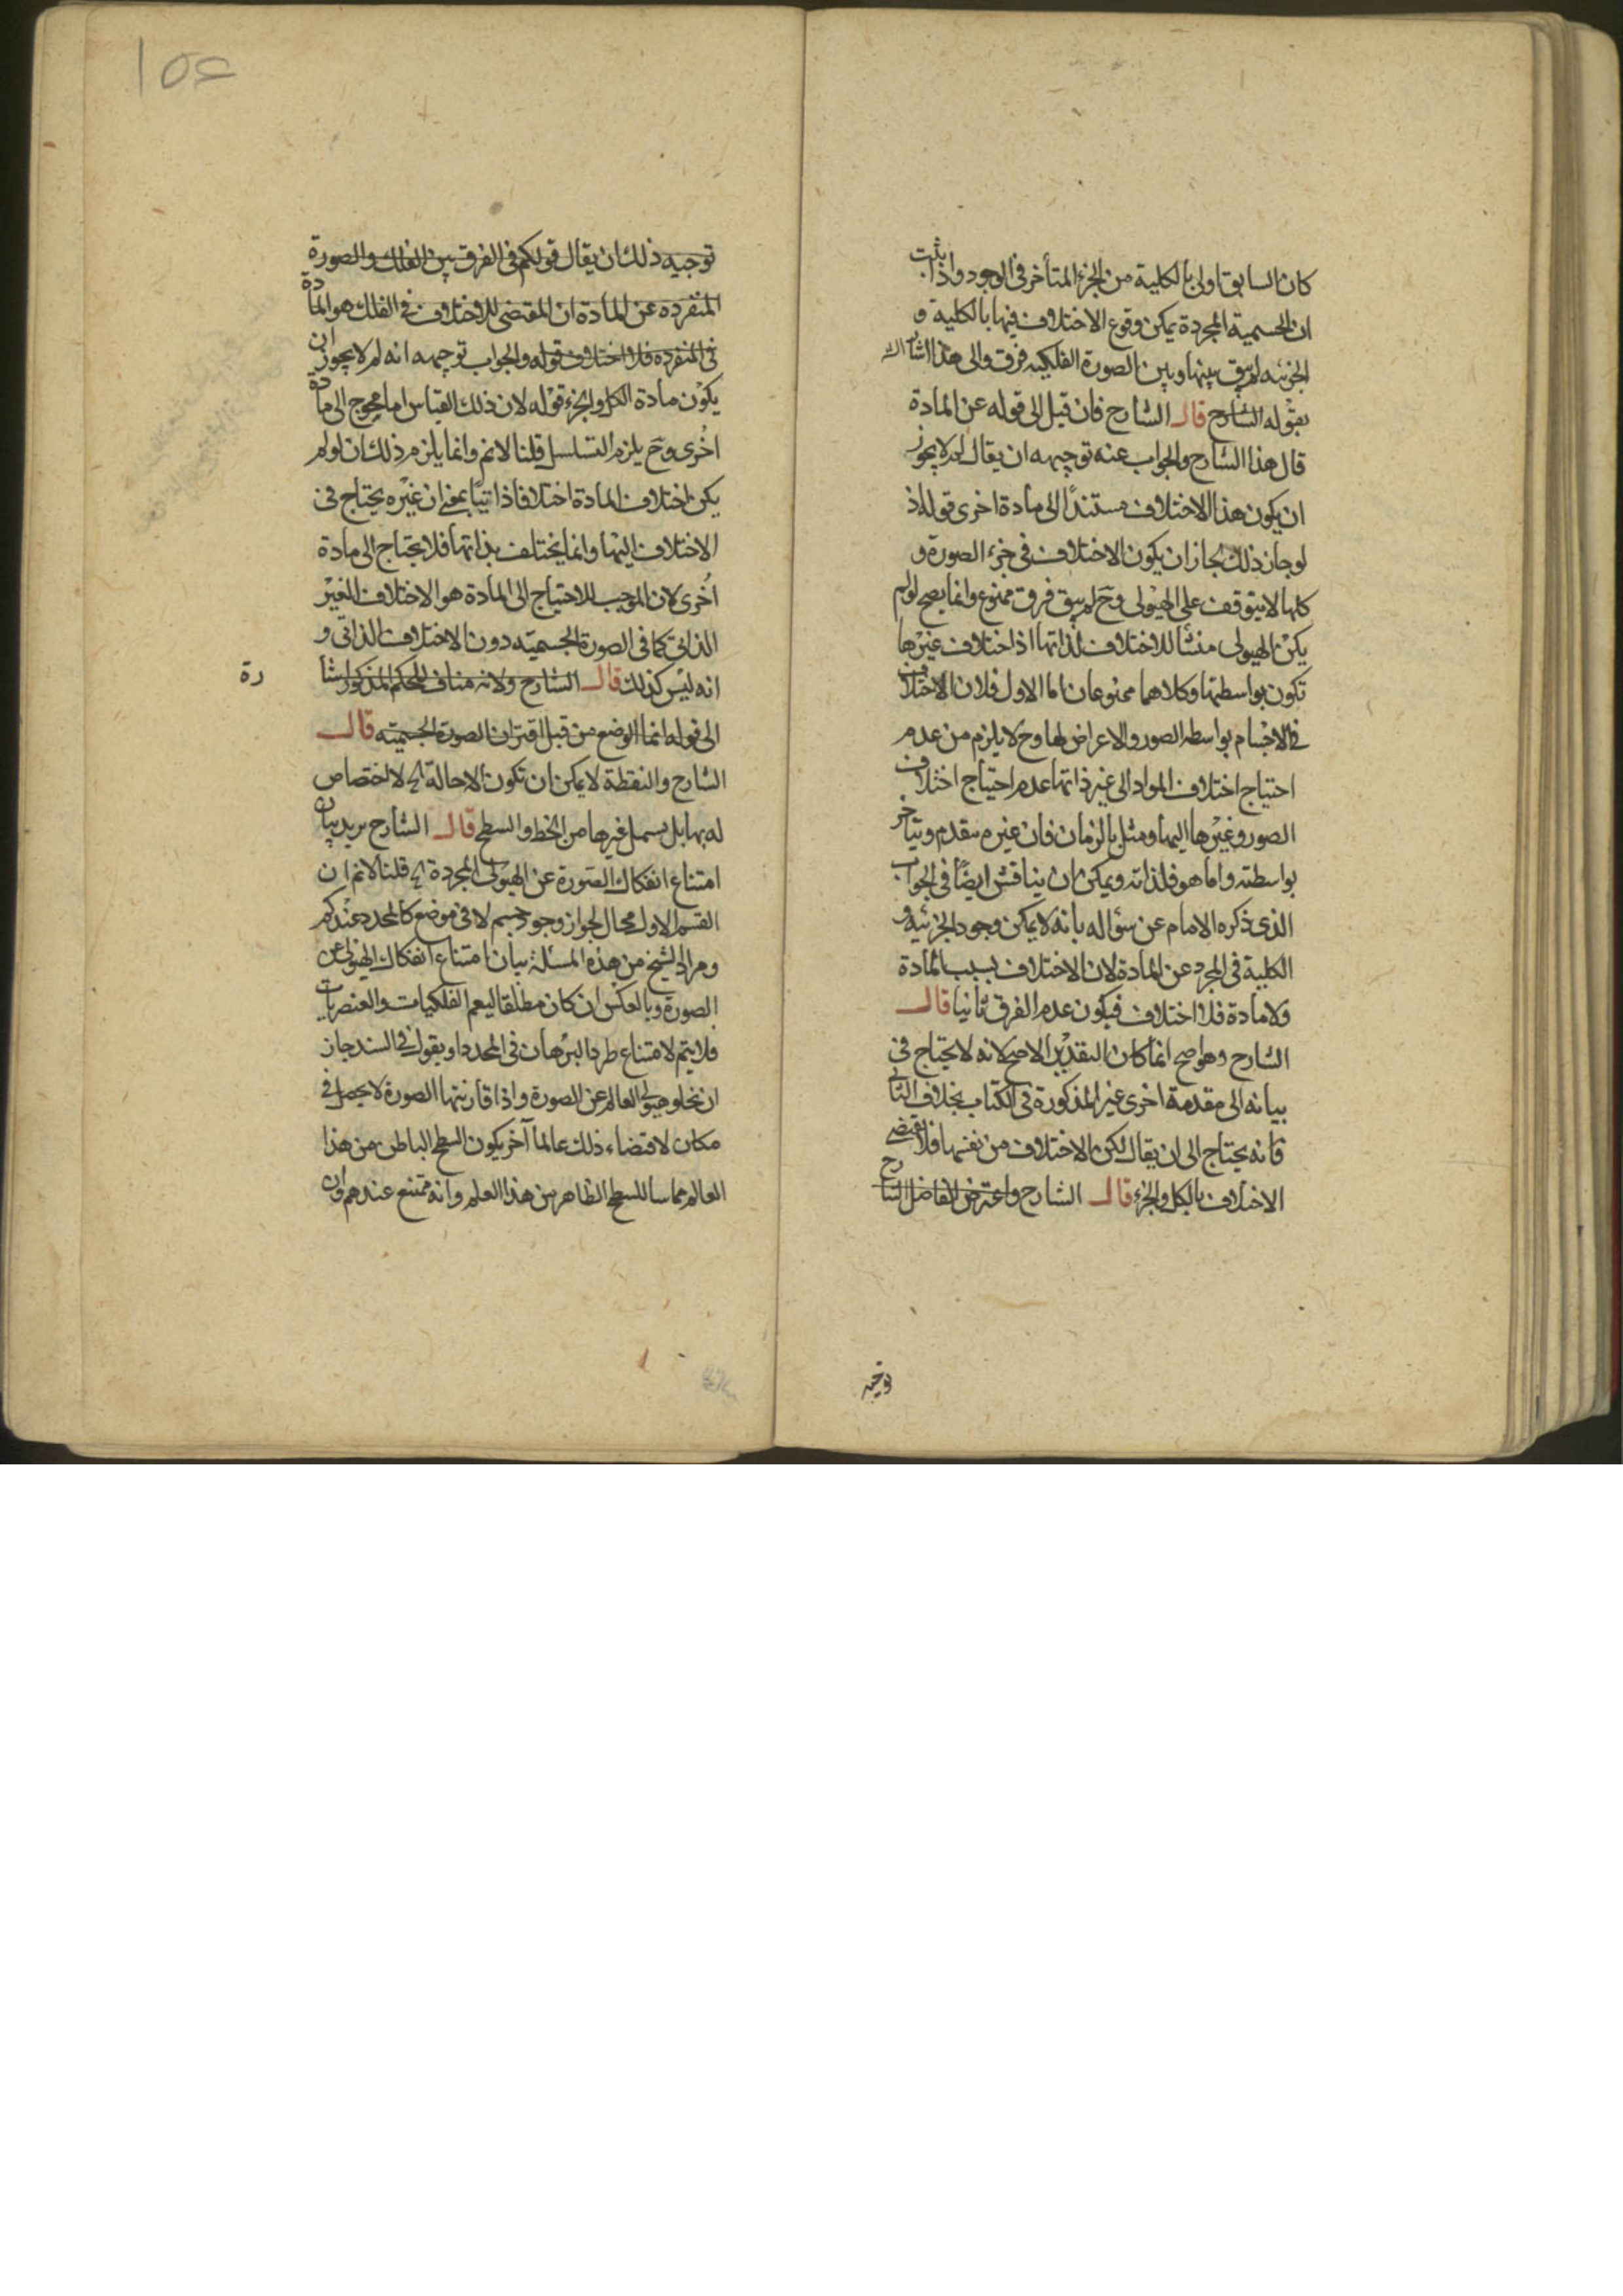 كان السابق اولى بالكلية من الجزء المتأخر في الوجود واذا ثبت
ان الجسمية المجردة يمكن وقوع الاختلاف فيها بالكلية و
الجزئيه لم يبق بينها وبين الصورة الفلكيه فرق والى هذا اشار
بقوله الشارح قال الشارح فان قيل الى قوله عن المادة
قال هذا الشارح والجواب عنه توجيهه ان يقال لم لا يجوز
ان يكون هذا الاختلاف مستندًا الى مادة اخرى قوله اذ
لو جاز ذلك لجاز ان يكون الاختلاف في جزء الصورة و
كلها لا يتوقف على الهيولى وح لم يبق فرق ممنوع وانما يصح لو لم
يكن الهيولى منشأ للاختلاف لذاتها اذ اختلاف غيرها
تكون بواسطتها وكلاهما ممنوعان اما الاول فلان الاختلاف
في الاجسام بواسطه الصور والاعراض لها وح لا يلزم من عدم
احتياج اختلاف المواد الى غير ذاتها عدم احتياج اختلاف
الصور وغيرها اليها ومثل بالزمان فان غيره يتقدم ويتأخر
بواسطته واما هو فلذاته ويمكن ان يناقش ايضًا في الجواب
الذي ذكره الامام عن سؤاله بانه لا يمكن وجود الجزئيه و
الكلية في المجرد عن المادة لان الاختلاف بسبب المادة
ولا مادة فلا اختلاف فيكون عدم الفرق ثانيا قال
الشارح وهو اصح انما كان التقدير الاصح لانه لا يحتاج في
بيانه الى مقدمة اخرى غير المذكورة في الكتاب بخلاف الثاني
فانه يحتاج الى ان يقال لكن الاختلاف من نفسها فلا يقتضي
الاختلاف بالكل والجزء قال الشارح واعترض الفاضل الشارح
توجيه
١٥٢
توجيه ذلك ان يقال قولكم في الفرق بين الفلك والصورة
المنفرده عن المادة ان المقتضى للاختلاف في الفلك هو المادة
في المنفرده فلا اختلاف قوله والجواب توجيهه انه لم لا يجوز ان
يكون مادة الكل والجزء قوله لان ذلك القياس اما محوج الى مادة
اخرى وح يلزم التسلسل قلنا لا نم وانما يلزم ذلك ان لو لم
يكن اختلاف المادة اختلافا ذاتيًا بمعنى ان غيره يحتاج في
الاختلاف اليها وانما يختلف بذاتها فلا يحتاج الى مادة
اخرى لان الموجب للاحتياج الى المادة هو الاختلاف الغير
الذاتي كما في الصورة الجسميه دون الاختلاف الذاتي و
انه ليس كذلك قال الشارح ولانه مناف للحكم المذكور اشا
رة
الى قوله انما الوضع من قبل اقتران الصورة الجسميته قال
الشارح والنقطة لا يمكن ان تكون الا حالة الخ لا اختصاص
له بها بل يسمل غيرها من الخط والسطح قال الشارح يريد بيان
امتناع انفكاك الصورة عن الهيولى المجردة الخ قلنا لا نم ان
القسم الاول محال لجواز وجود جسم لا في موضع كالمحدد عندكم
ومراد الشيخ من هذه المسئلة بيان امتناع انفكاك الهيولى عن
الصورة وبالعكس ان كان مطلقا ليعم الفلكيات والعنصريات
فلا يتم لامتناع طرد البرهان في المحدد او يقول في السند جاز
ان تخلو هيولى العالم عن الصورة واذا قارنتها الصورة لا يحصل في
مكان لاقتضاء ذلك عالما آخر يكون السطح الباطن من هذا
العالم مماسا للسطح الظاهر من هذا العلم وانه ممتنع عندهم